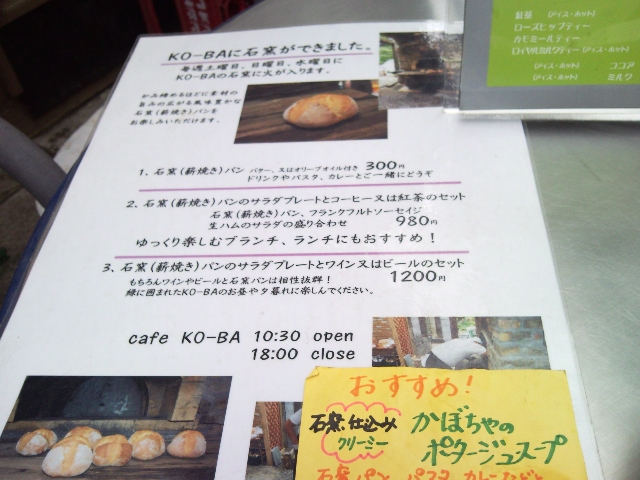 KO-BAに石窯ができました。
毎週土曜日、日曜日、水曜日に
KO-BAの石窯に火が入ります。
かみ締めるほどに素材の
旨みの広がる風味豊かな
石窯(薪焼き)パンを
お楽しみいただけます。
1. 石窯(薪焼き)パン バター、又はオリーブオイル付き 300円
ドリンクやパスタ、カレーとご一緒にどうぞ
2. 石窯(薪焼き)パンのサラダプレートとコーヒー又は紅茶のセット
石窯(薪焼き)パン、フランクフルトソーセイジ
生ハムのサラダの盛り合わせ 980円
ゆっくり楽しむブランチ、ランチにもおすすめ！
3. 石窯(薪焼き)パンのサラダプレートとワイン又はビールのセット
もちろんワインやビールと石窯パンは相性抜群！ 1200円
緑に囲まれたKO-BAのお昼や夕暮れに楽しんでください。
cafe KO-BA 10:30 open
18:00 close
おすすめ!
石窯仕込み かぼちゃの
クリーミー ポタージュスープ
石窯パン パスタ カレーなどと
紅茶 (アイス・ホット)
ローズヒップティー
カモミールティー
ロイヤルミルクティー (アイス・ホット)
(アイス・ホット) ココア
(アイス・ホット) ミルク